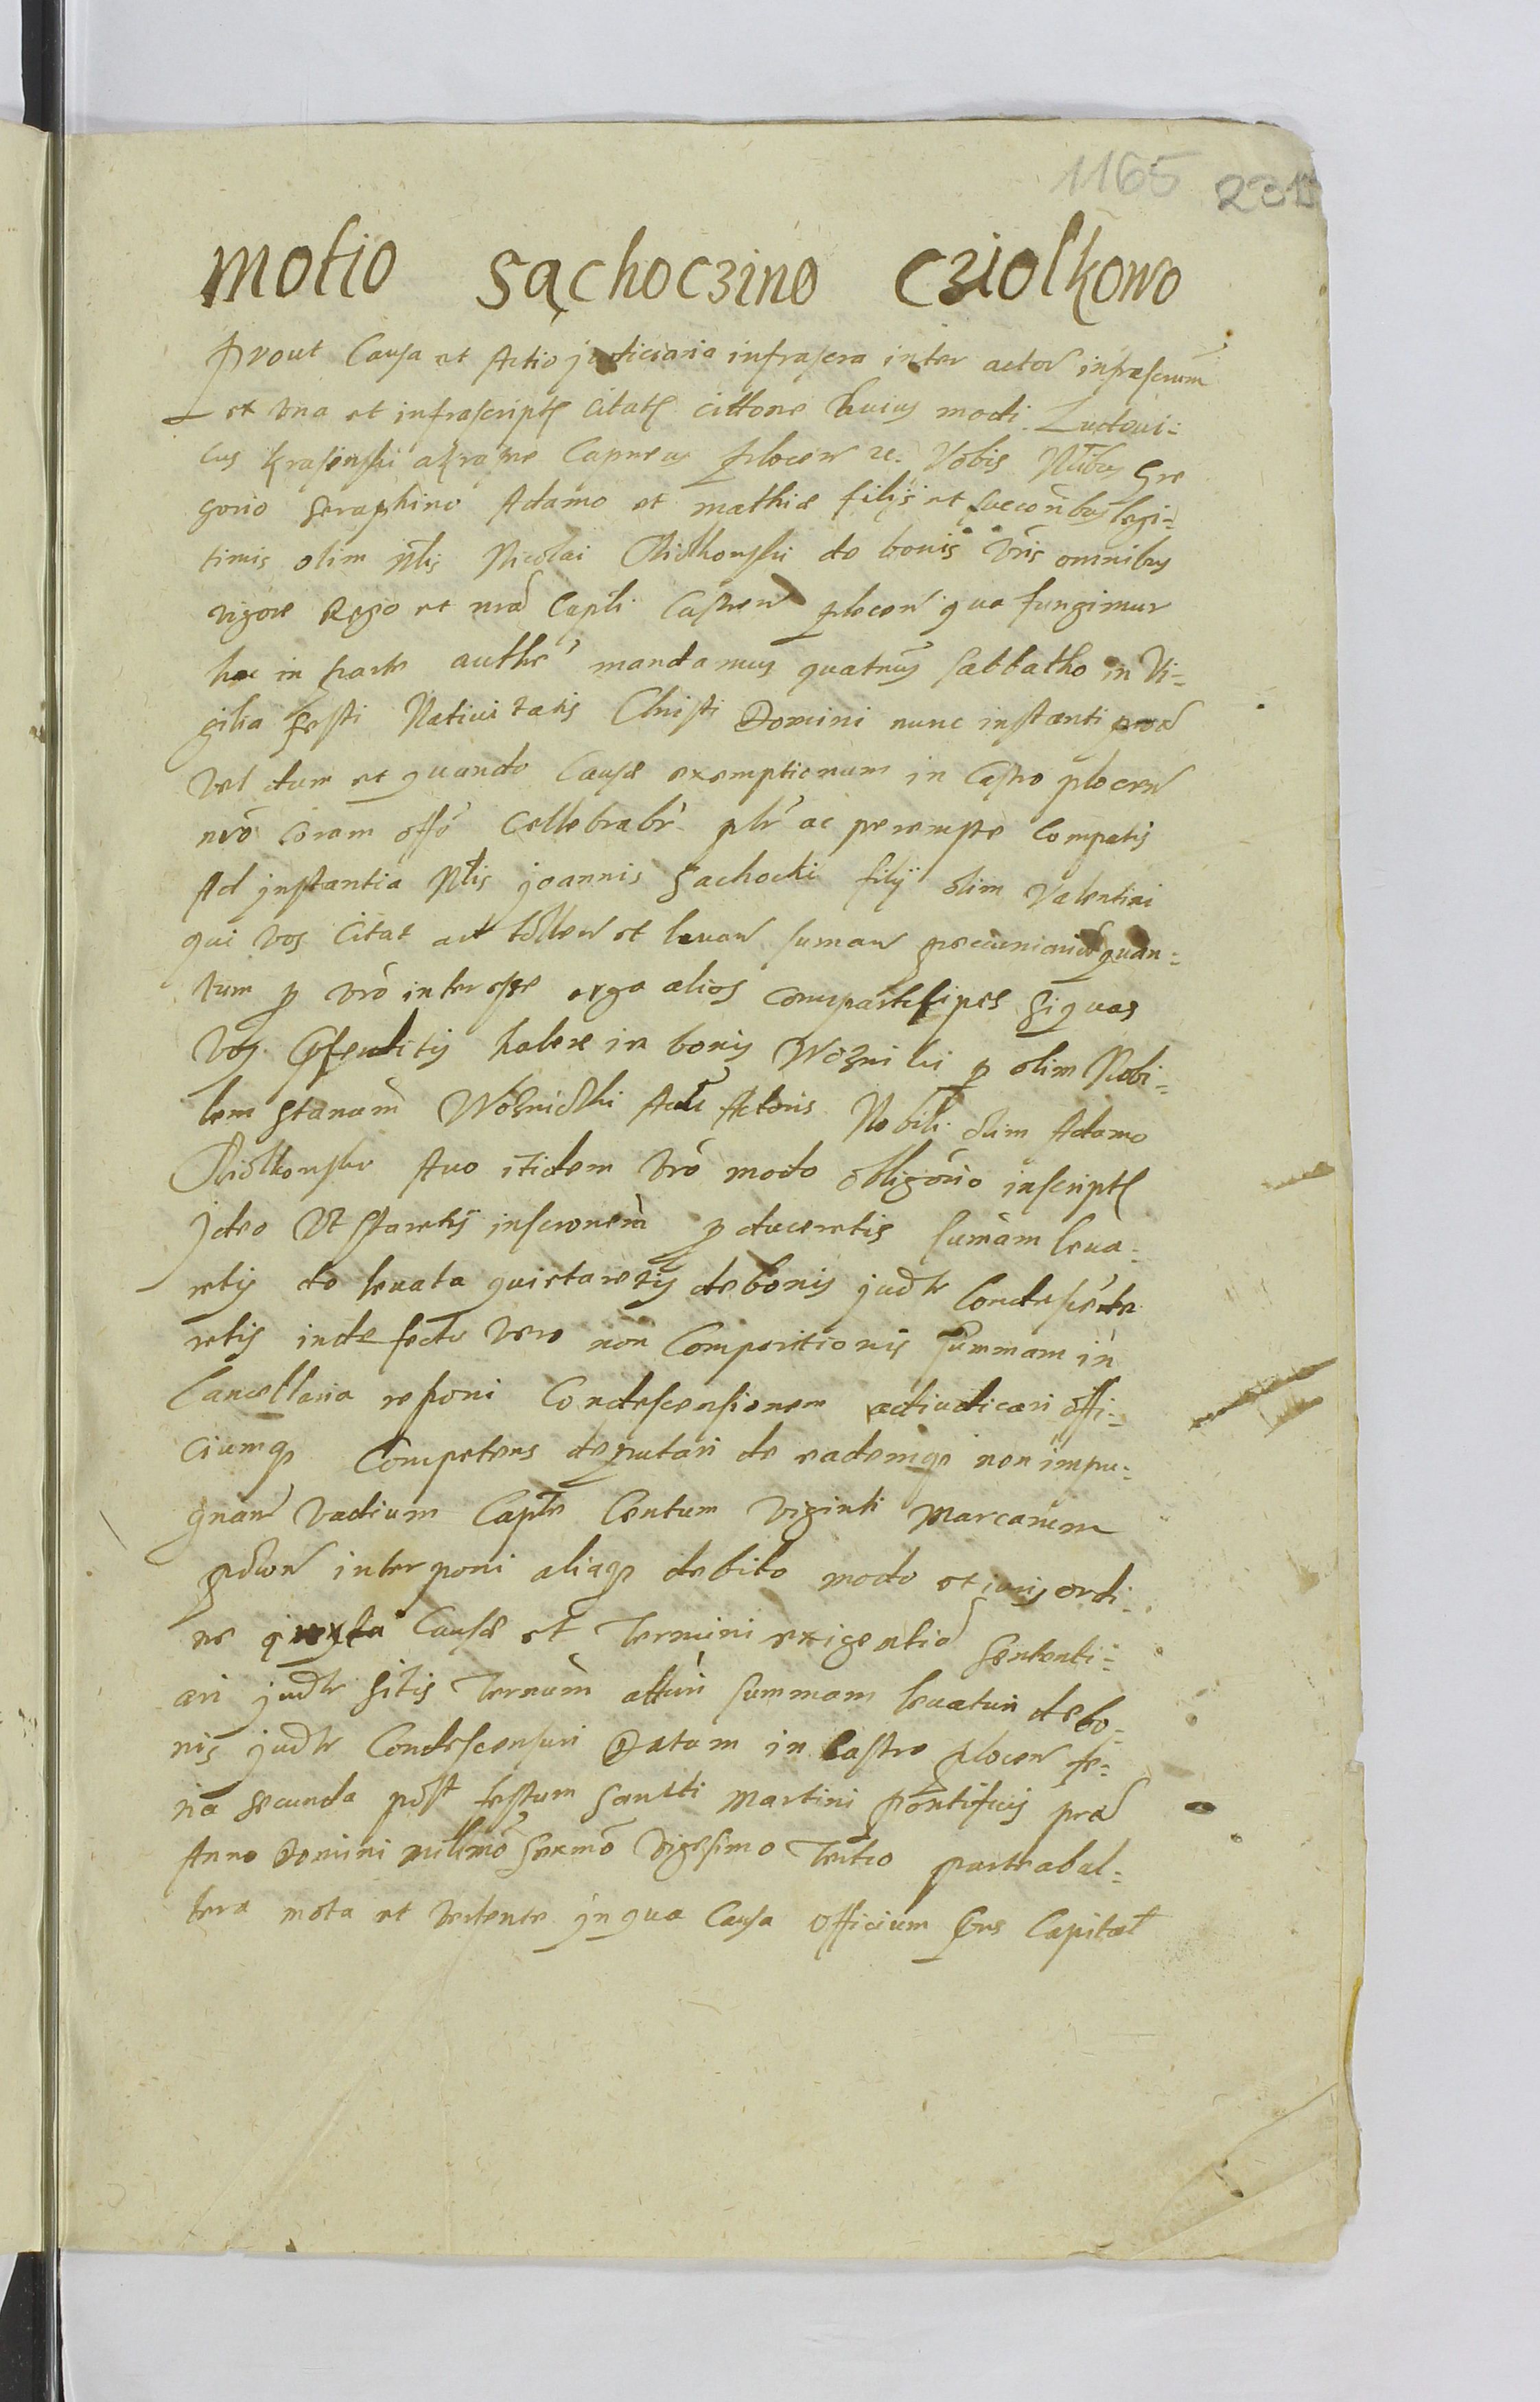 1165 231
Motio Sąchoczino Cziolkowo
Prout Causa et Actio judiciaria infrascra inter actor infrascrum
et una et infrascript Citat cittone huius modi Ludovi=
cus Krasenski a Krasne Capneus Plocen etc. Vobis Nlibus Gre
gorio Seraphino Adamo et Mathiæ filijs et succoribus legi=
timis olim Nlis Nicolai Cziolkowski de bonis vris omnibus
vigore Regio et mea Captli Castren Plocen qua fungimur
hac in parte authe mandamus quatnus Sabbatho in Vi=
gilia festi Nativitatis Christi Domini nunc instanti
vel dum et quando Causæ exemptionum in Castro Plocen
nro coram offo Cellebrabr plr ac perempte compatis
Ad instantia Nlis Joannis Sachocki filij olim Valentini
qui vos Citat ad tollen et levan suman pecuniariam quan=
tum p vro interesse erga alios comparticipes siquas
vos prtenditis habere in bonis Wozniki p olim Nobi=
lem Stanum Woznicki Actoris Nobili olim Adamo
Cziolkowski Avo itidem vro modo obligorio inscript
Ideo Vt staretis inscronem p duceretis sumam leva=
retis de levata quietaretis de bonis judtr Condescende
retis in defectu vero non Comparitionis summam in
Cancellaria reponi Condescensionem adiudicari offi=
ciumq Competens deputari de eademq non impu=
gnan vadium Capte Centum viginti Marcarum
pecun interponi aliaq debito modo et juris ordi
ne juxta Causæ et Termini exigentia Sententi=
ari judtr Sitis Ternum atturi summam levaturi de bo=
nis judtr Condescensuri Datum in Castro Plocen fe=
ria secunda post festum Sancti Martini Pontificis prox
Anno Domini milimo Sexmo vigesimo Tertio parte ab al=
tera mota et vertente In qua Causa Officium prns Capital